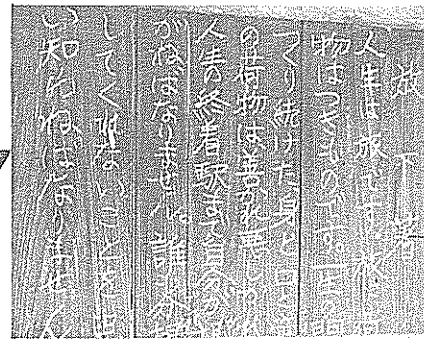 放下着
人生は旅です。旅に荷
物はつきものです。一生の間
つくり続けた身と口と
の荷物は善かれ悪しかれ
人生の終着駅まで自分が
がねばなりません。誰も
してくれないことを
い知らねばなりません